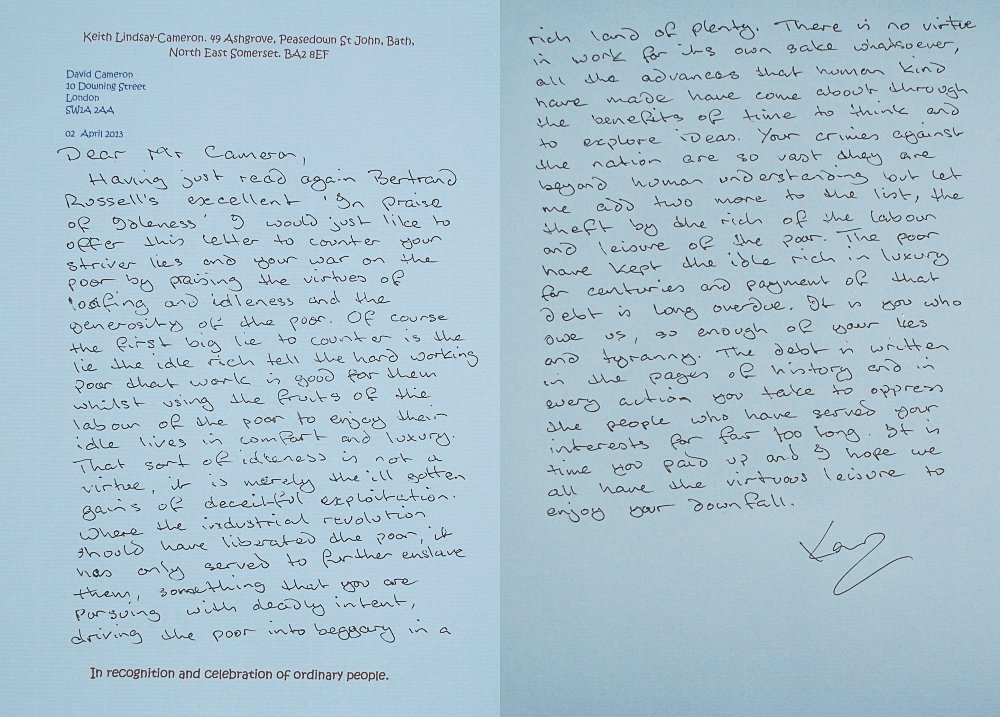 Keith Lindsay-Cameron. 49 Ashgrove, Peasedown St John, Bath,
North East Somerset. BA2 8EF
David Cameron
10 Downing Street
London
SW1A 2AA
02 April 2013
Dear Mr Cameron,
Having just read again Bertrand
Russell's excellent 'In Praise
of Idleness' I would just like to
offer this letter to counter your
striver lies and your war on the
poor by praising the virtues of
loafing and idleness and the
generosity of the poor. Of course
the first big lie to counter is the
lie the idle rich tell the hard working
poor that work is good for them
whilst using the fruits of the
labour of the poor to enjoy their
idle lives in comfort and luxury.
That sort of idleness is not a
virtue, it is merely the ill gotten
gains of deceitful exploitation.
Where the industrial revolution
should have liberated the poor, it
has only served to further enslave
them, something that you are
pursuing with deadly intent,
driving the poor into beggary in a
In recognition and celebration of ordinary people.
rich land of plenty. There is no virtue
in work for its own sake whatsoever,
all the advances that human kind
have made have come about through
the benefits of time to think and
to explore ideas. Your crimes against
the nation are so vast they are
beyond human understanding but let
me add two more to the list, the
theft by the rich of the labour
and leisure of the poor. The poor
have kept the idle rich in luxury
for centuries and payment of that
debt is long overdue. It is you who
owe us, so enough of your lies
and tyranny. The debt is written
in the pages of history and in
every action you take to oppress
the people who have served your
interests for far too long. It is
time you paid up and I hope we
all have the virtuous leisure to
enjoy your downfall.